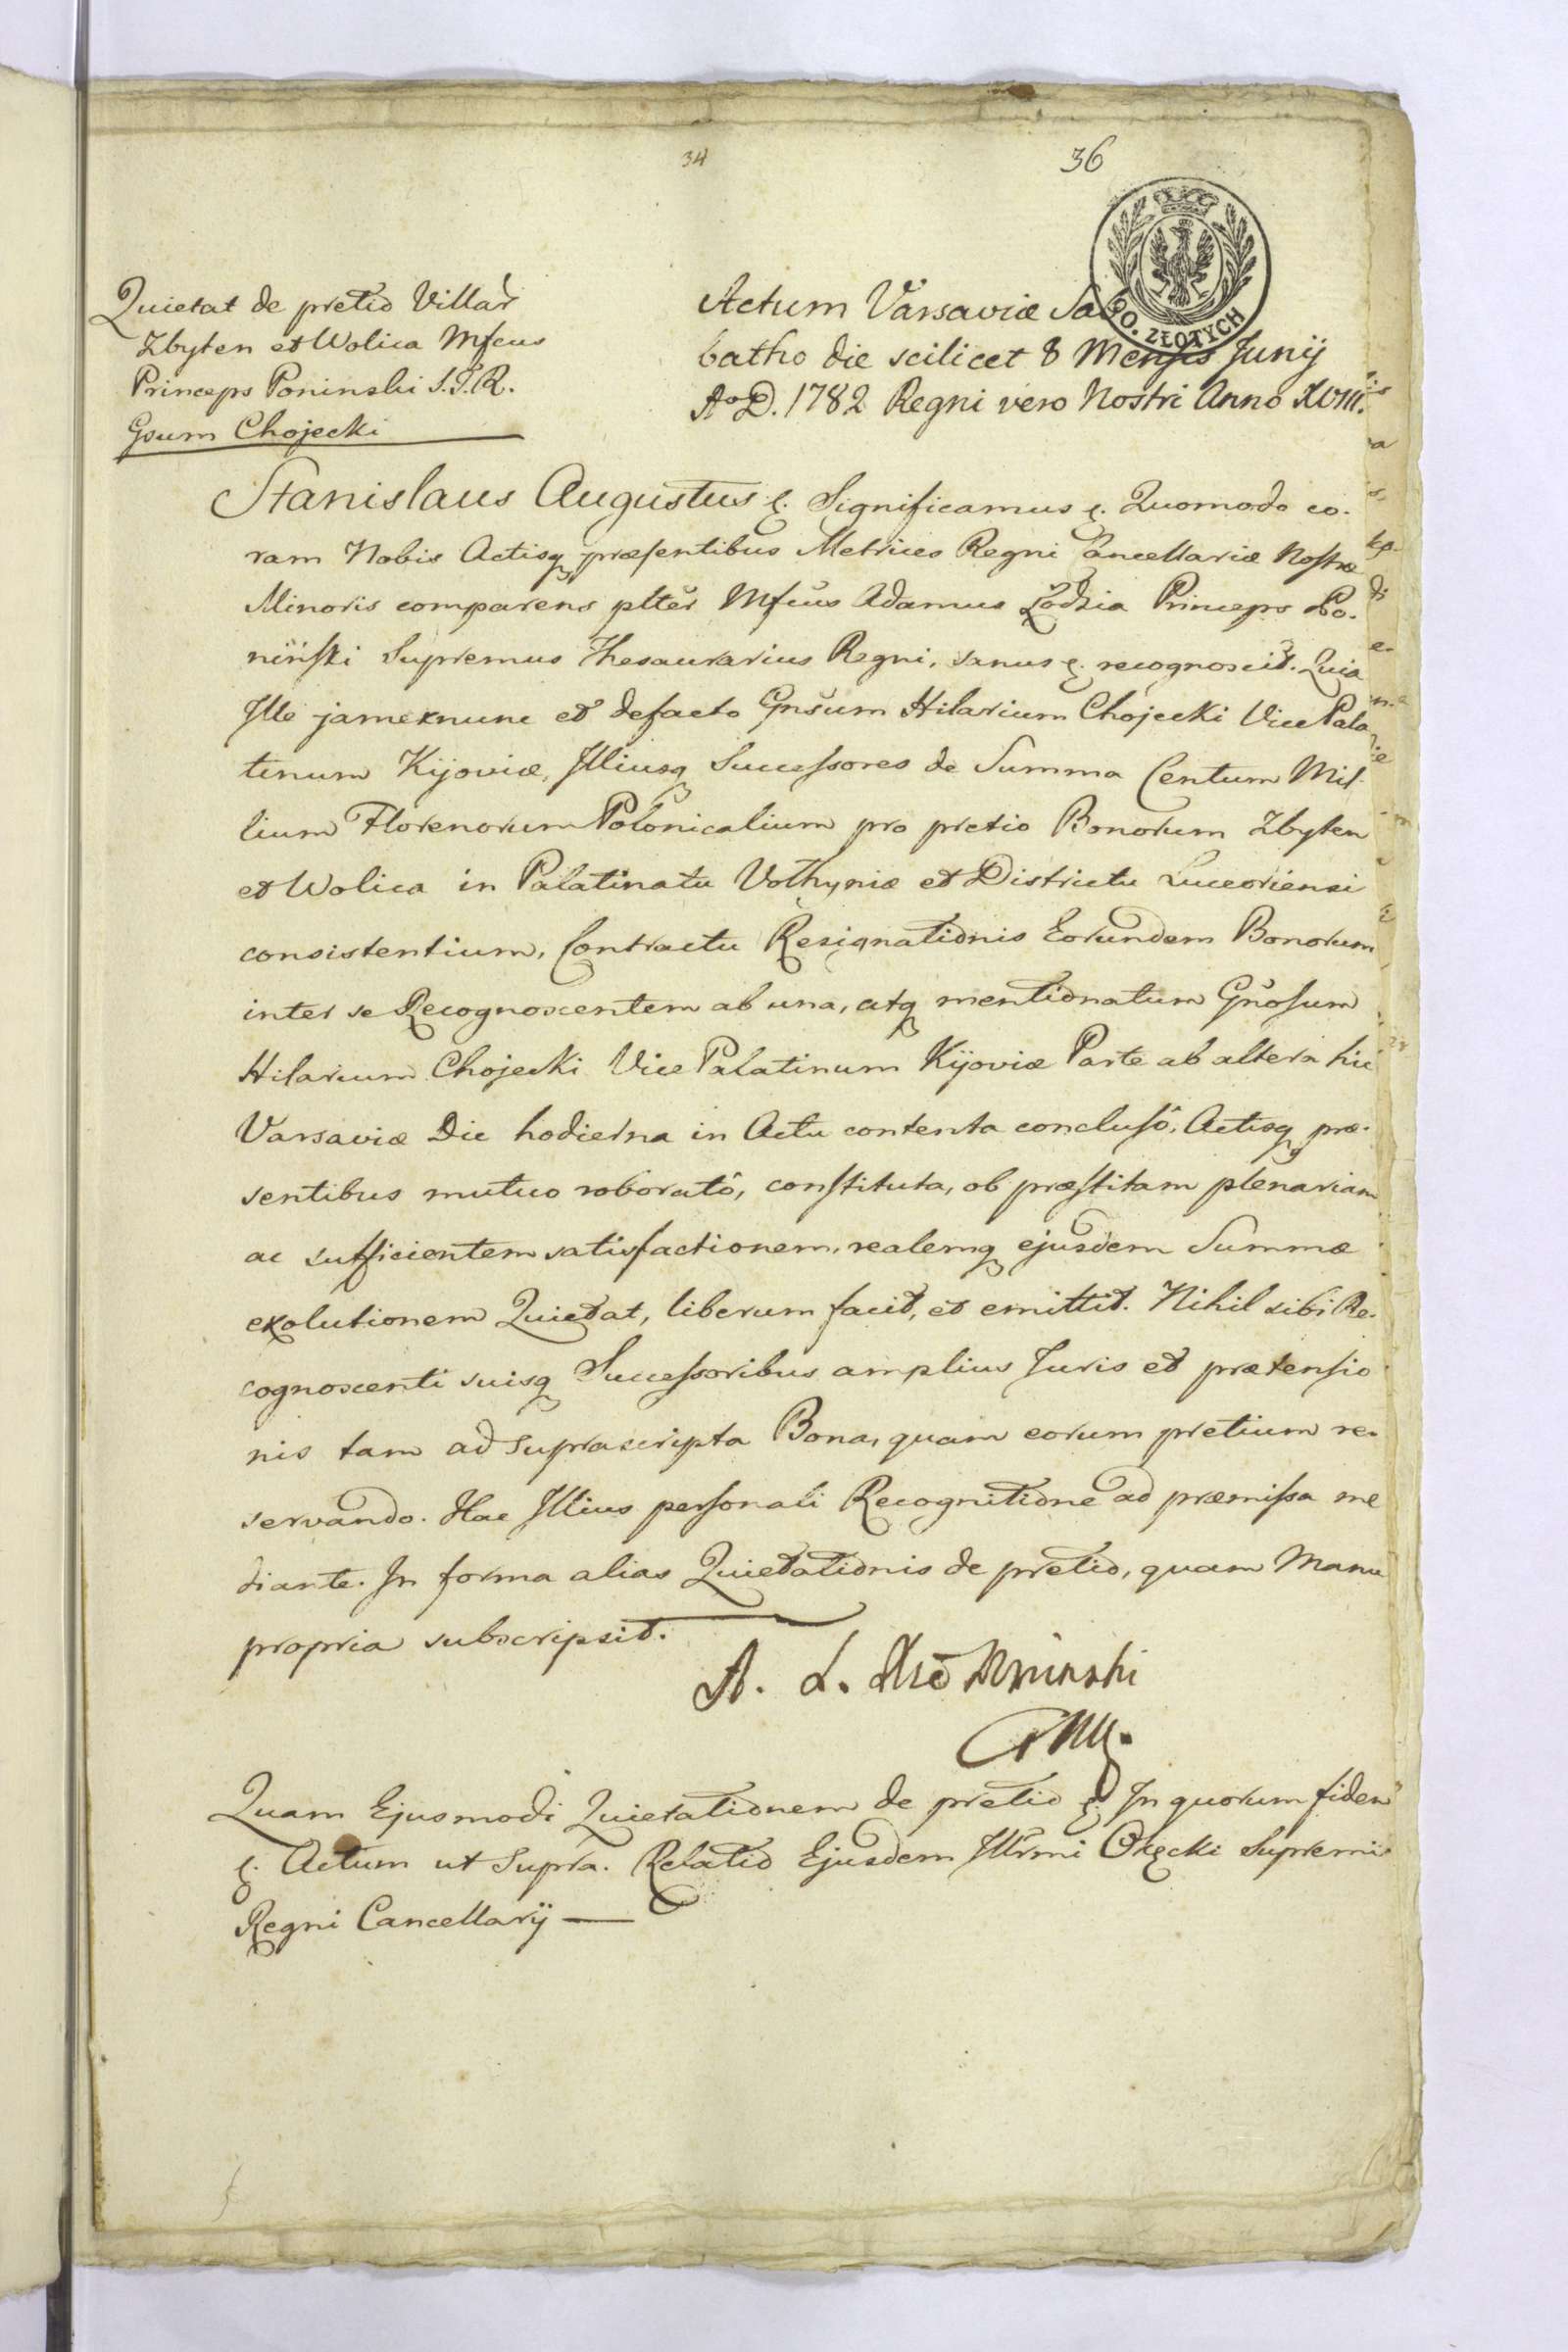 34
36
90. ZŁOTYCH
Quietat de pretio Villar
Zbyten et Wolica Mfcus
Princeps Poninski S.T.R.
Gsum Chojecki
Actum Varsaviæ Sa
batho die scilicet 8 Mensis Junij
Ao D. 1782 Regni vero Nostri Anno XVIII.
Stanislaus Augustus &. Significamus &. Quomodo co.
ram Nobis Actisq præsentibus Metrices Regni Cancellariæ Nostræ
Minoris comparens plter Mfcus Adamus Łodzia Princeps Po.
niński Supremus Thesaurarius Regni, sanus &. recognoscit. Quia
Ille jam exnunc et defacto Gnsum Hilarium Chojecki Vice Pala
tinum Kijoviæ, Illiusq Successores de Summa Centum Mil.
lium Florenorum Polonicalium pro pretio Bonorum Zbyten
et Wolica in Palatinatu Volhyniæ et Districtu Luceoriensi
consistentium, Contractu Resignationis Eorundem Bonorum
inter se Recognoscentem ab una, atq mentionatum Gnosum
Hilarium Chojecki Vice Palatinum Kijoviæ Parte ab altera hic
Varsaviæ Die hodierna in Actu contenta conclusô, Actisq præ.
sentibus mutuo roboratô, constituta, ob præstitam plenariam
ac sufficientem satisfactionem, realemq ejusdem Summæ
exolutionem Quietat, liberum facit, et emittit. Nihil sibi Re.
cognoscenti suisq Successoribus amplius Juris et prætensio
nis tam ad suprascripta Bona, quam eorum pretium re.
servando. Hac Illius personali Recognitione ad præmissa me
diante. In forma alias Quietationis de pretio, quam Manu
propria subscripsit.
A. L. Poninski
Quam Ejusmodi Quietationem de pretio &. In quorum fidem
&. Actum ut Supra. Relatio Ejusdem Illrmi Okęcki Supremi
Regni Cancellarij